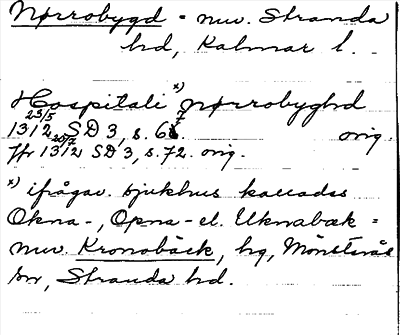 Norrobygd = nuv. Stranda
hd, Kalmar l.
Hospitali x) norrobyghd
1312 23/5 SD 3, s. 67. orig.
Jfr 1312 20/7 SD 3, s. 72. orig.
x) ifrågav. sjukhus kallades
Okna-, Opna- el. Uknabæk =
nuv. Kronobäck, hg, Mönsterås
sn, Stranda hd.